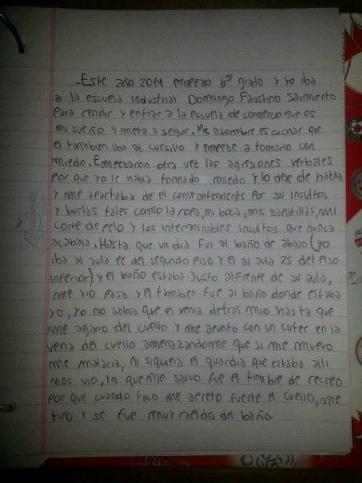 -Este año 2014 empezo 6to grado y yo iba
a la escuela industrial Domingo Faustino Sarmiento
para rendir y entrar a la escuela de comercio que es
mi sueño y meta a seguir. Me asombre escuchar que
el tambien iba al cursillo y empece a tomarlo con
miedo. Empezaron otra vez las agresiones verbales
por que yo le habia tomado miedo y lo deje de habla
y me apartaba de el constantemente por su insultos
y burlas tales como la ropa, mi boca, mis zapatillas, mi
corte de pelo y los interminables insultos que nunca
acababa. Hasta que un dia fui al baño de abajo (yo
iba al aula 12 del segundo piso y el al aula 25 del piso
inferior) y el baño estaba justo al frente de su aula,
me vio pasa y el tambien fue al baño donde estaba
yo, yo no sabia que el venia detras mio hasta que
me agarro del cuello y me apunto con un cuter en la
vena del cuello amenazandome que si me muevo
me mataria, ni siquiera el guardia que estaba alli
nos vio, lo que me salvo fue el timbre de recreo
por que cuando toco me apreto fuerte el cuello, me
tiro y se fue muy rapido del baño.